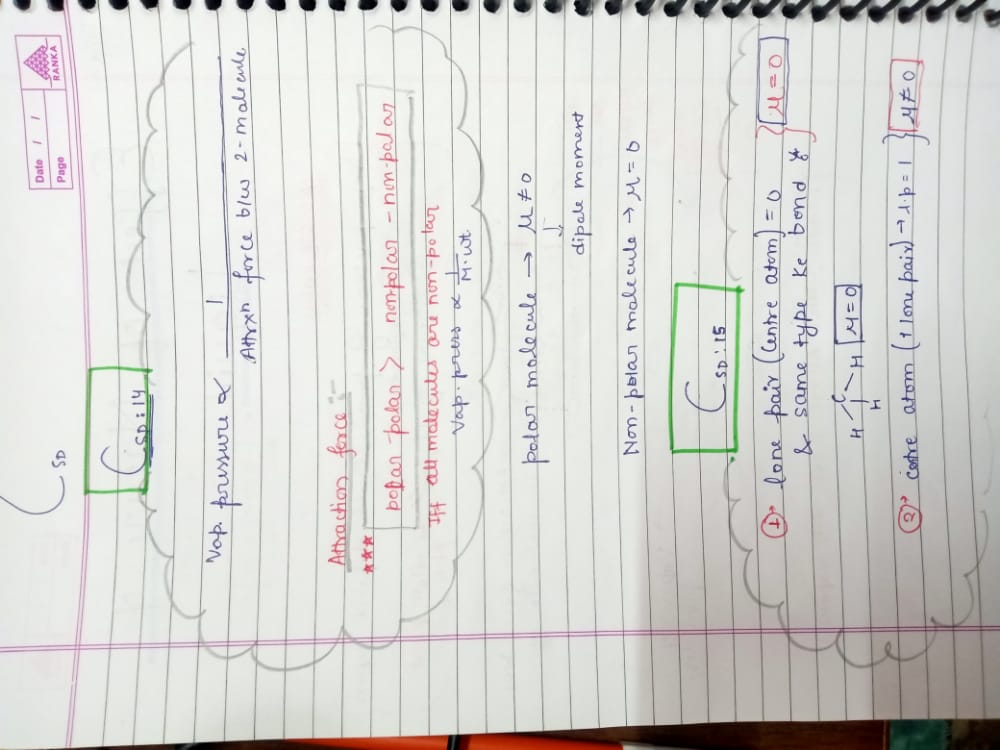 Date / /
Page
RANKA
C SD
C SD:14
Vap. pressure ∝ 1 / Attrxn force b/w 2-malecule
Attraction force :-
*** popar-palar > nonpolar - non-palar
Iff all malecules are non-polar
Vap. press ∝ 1/M.wt
polar molecule → μ ≠ 0
↓
dipale moment
Non-polar malecule → μ = 0
C SD:15
① lone pair (Centre atom) = 0
& same type ke bond } μ = 0
H C H H μ = 0
② centre atom (1 lone pair) → l.p = 1 } μ ≠ 0